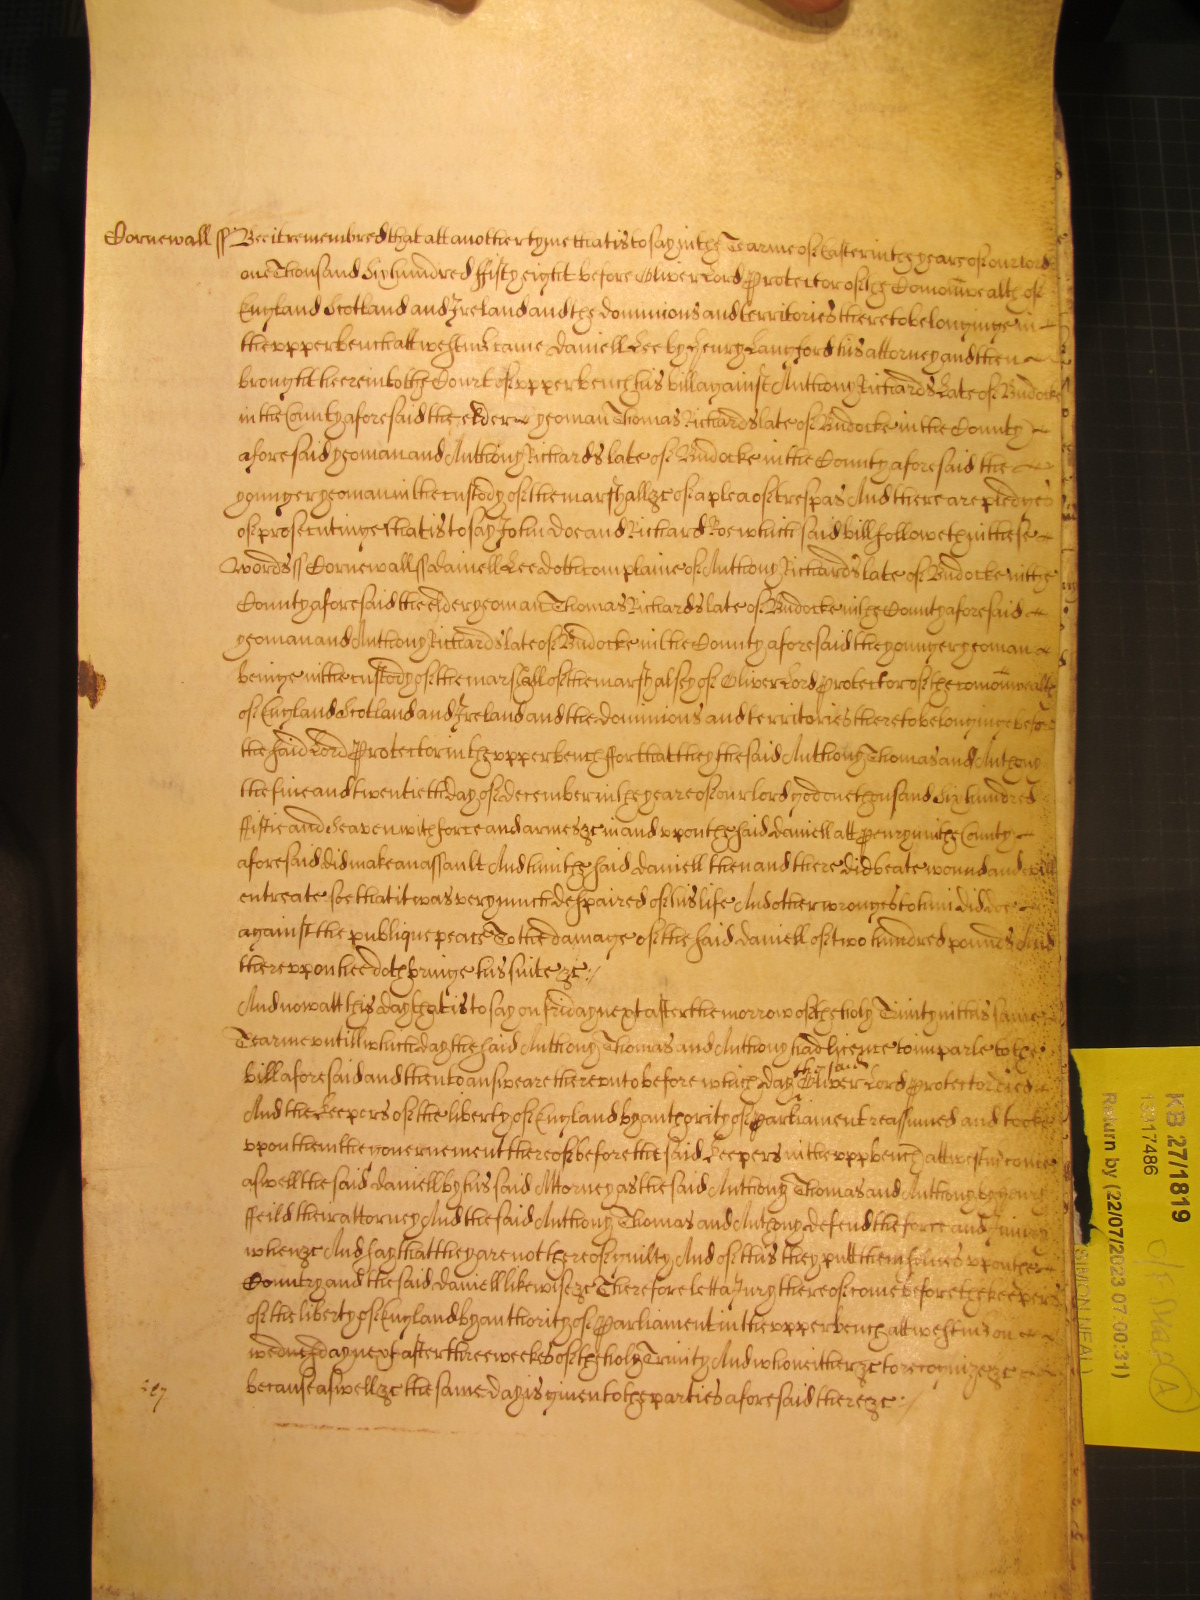 Cornewall ss Bee it remembred that att another tyme that is to say in the Tearme of Easter in the yeare of our lord
one Thousand Six hundred ffifty eight before Oliver Lord Protector of the Comonwealth of
England Scotland and Ireland and the dominions and territories thereto belonginge in
the vpper bench att westmr came Daniell Lee by Henry Langford his attorney and then
brought heere into the Court of vpper bench his bill against Anthony Richards late of Budocke
in the County aforesaid the elder yeoman Thomas Richards late of Budocke in the County
aforesaid yeoman and Anthony Richards late of Budocke in the County aforesaid the
younger yeoman in the custody of the marshall &c of a plea of trespas And there are pledges
of prosecutinge that is to say John doe and Richard Roe which said bill followeth in these
words ss Cornewall ss Daniell Lee doth complaine of Anthony Richards late of Budocke in the
County aforesaid the elder yeoman Thomas Richards late of Budocke in the County aforesaid
yeoman and Anthony Richards late of Budocke in the County aforesaid the younger yeoman
beinge in the custody of the marshall of the marshalsey of Oliver Lord Protector of the comonwealth
of England Scotland and Ireland and the dominions and territories thereto belonginge before
the said Lord Protector in the vpper bench ffor that they the said Anthony Thomas and Anthony
the five and twentieth day of december in the yeare of our lord god one thousand Six hundred
ffiftie and Seaven with force and armes &c in and vpon the said Daniell att Penryn in the County
aforesaid did make an assault And him the said Daniell then and there did beate wound and evill
entreate soe that it was very much despaired of his life And other wronges to him did doe
against the publique peace To the damage of the said Daniell of two hundred pounds And
therevpon hee doth bringe his suite &c
And now att this day that is to say on friday next after the morrow of the holy Trinity in this same
Tearme vntill which day the said Anthony Thomas and Anthony had licence to imparle to the
bill aforesaid and then to answeare therevnto before which day the said Oliver Lord Protector died
And the Keepers of the liberty of England by authority of Parliament reassumed and tooke
vpon them the governement thereof before the said Keepers in the vpp bench att westmr come
aswell the said Daniell by his said Attorney as the said Anthony Thomas and Anthony by Henry
ffeild their attorney And the said Anthony Thomas and Anthony defend the force and Iniury
when &c And say that they are not thereof guilty And of this they putt themselves vpon the
Country and the said Daniell likewise &c Therefore lett a Jury thereof come before the keepers
of the liberty of England by authority of Parliament in the vpper bench att westmr on
wednesday next after three weekes of the holy Trinity And who neither &c to recognize &c
because aswell &c the same day is given to the parties aforesaid there &c
KB 27/1819
13117486
Return by (22/07/2023 07:00:31)
(SIMON NEAL)
A